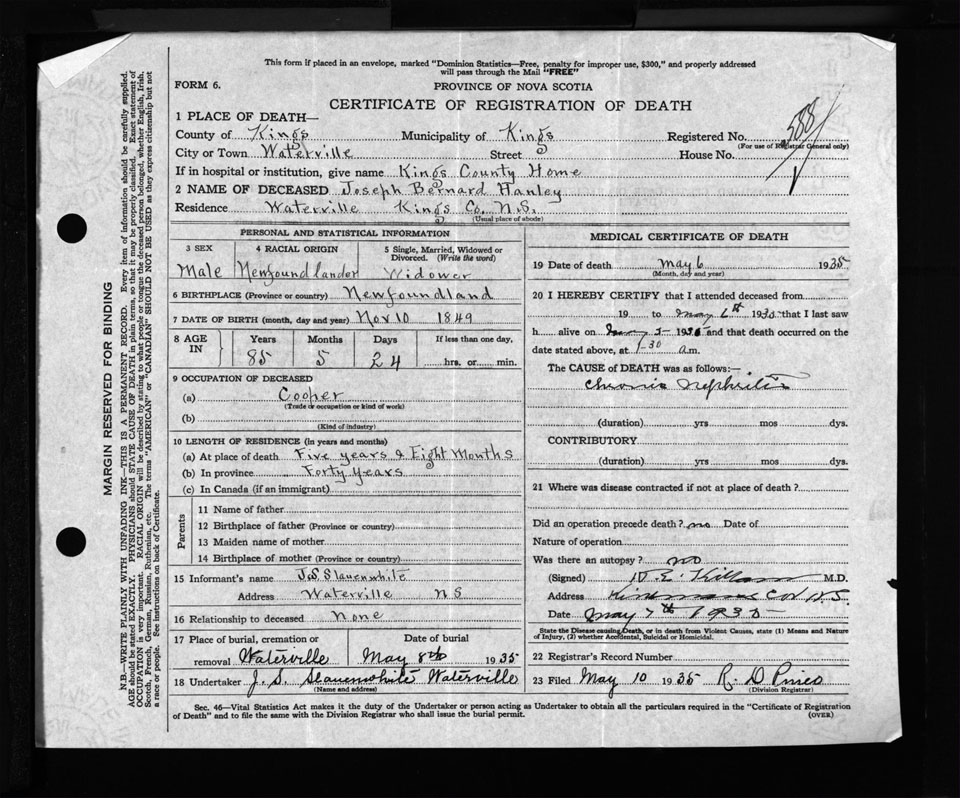 This form if placed in an envelope, marked "Dominion Statistics—Free, penalty for improper use, $300," and properly addressed
will pass through the Mail "FREE"
FORM 6.
PROVINCE OF NOVA SCOTIA
CERTIFICATE OF REGISTRATION OF DEATH
588
1 PLACE OF DEATH—
County of Kings Municipality of Kings Registered No.
(For use of Registrar General only)
City or Town Waterville Street House No.
If in hospital or institution, give name Kings County Home
2 NAME OF DECEASED Joseph Bernard Hanley
Residence Waterville Kings Co. N.S.
(Usual place of abode)
PERSONAL AND STATISTICAL INFORMATION
3 SEX 4 RACIAL ORIGIN 5 Single, Married, Widowed or Divorced. (Write the word)
Male Newfoundlander Widower
6 BIRTHPLACE (Province or country) Newfoundland
7 DATE OF BIRTH (month, day and year) Nov 10 1849
8 AGE IN Years Months Days If less than one day,
85 5 24 hrs. or min.
9 OCCUPATION OF DECEASED
(a) Cooper
(Trade or occupation or kind of work)
(b)
(Kind of industry)
10 LENGTH OF RESIDENCE (in years and months)
(a) At place of death Five years & Eight Months
(b) In province Forty Years
(c) In Canada (if an immigrant)
Parents
11 Name of father
12 Birthplace of father (Province or country)
13 Maiden name of mother
14 Birthplace of mother (Province or country)
15 Informant's name J.S. Slauenwhite
Address Waterville N S
16 Relationship to deceased None
17 Place of burial, cremation or removal Waterville Date of burial May 8th 1935
18 Undertaker J. S. Slauenwhite Waterville
(Name and address)
MEDICAL CERTIFICATE OF DEATH
19 Date of death May 6 1935
(Month, day and year)
20 I HEREBY CERTIFY that I attended deceased from
19 to May 6th 1935 that I last saw
h alive on May 5 1935 and that death occurred on
date stated above, at 1.30 a.m.
The CAUSE of DEATH was as follows:—
Chronic Nephritis
(duration) yrs mos dys.
CONTRIBUTORY
(duration) yrs mos dys.
21 Where was disease contracted if not at place of death?
Did an operation precede death? no Date of
Nature of operation
Was there an autopsy? no
(Signed) Killam M.D.
Address N.S.
Date May 7th 1935
State the Disease causing Death, or in death from Violent Causes, state (1) Means and Nature
of Injury, (2) whether Accidental, Suicidal or Homicidal.
22 Registrar's Record Number
23 Filed May 10 1935 R. D Pineo
(Division Registrar)
Sec. 46—Vital Statistics Act makes it the duty of the Undertaker or person acting as Undertaker to obtain all the particulars required in the "Certificate of Registration
of Death" and to file the same with the Division Registrar who shall issue the burial permit.
(OVER)
MARGIN RESERVED FOR BINDING
N.B.—WRITE PLAINLY WITH UNFADING INK—THIS IS A PERMANENT RECORD. Every item of information should be carefully supplied.
AGE should be stated EXACTLY. PHYSICIANS should STATE CAUSE OF DEATH in plain terms, so that it may be properly classified. Exact statement of
OCCUPATION is very important. RACIAL ORIGIN will be described by stating to what people or tongue the deceased person belonged, whether English, Irish,
Scotch, French, German, Russian, Ruthenian, etc. The terms "AMERICAN" or "CANADIAN" SHOULD NOT BE USED as they express citizenship but not
a race or people. See instructions on back of Certificate.